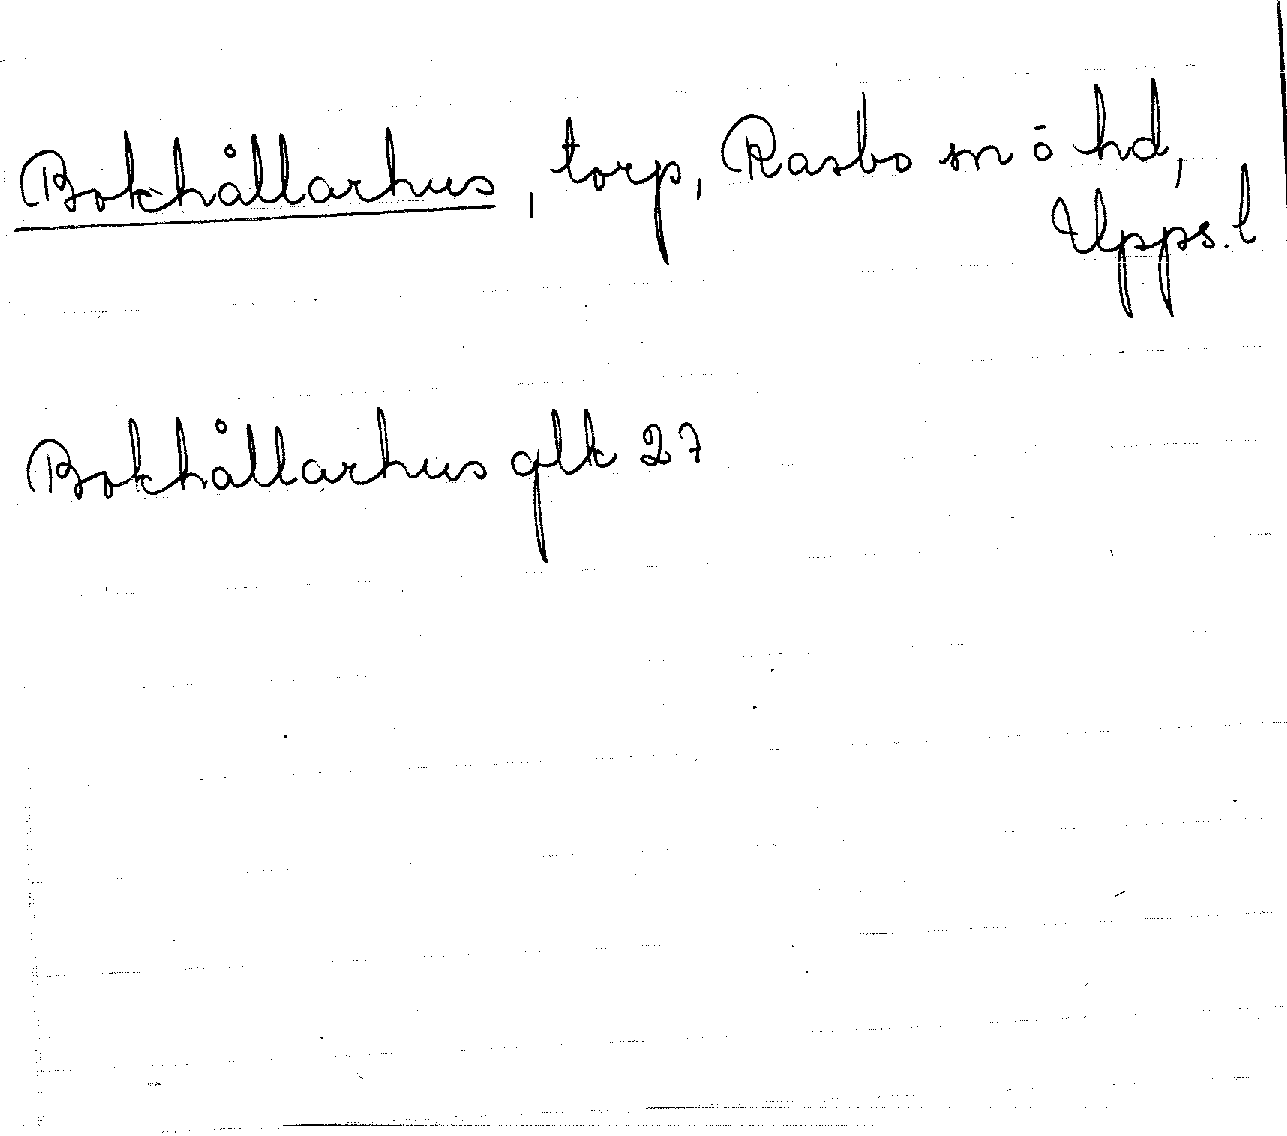 Bokhållarhus, torp, Rasbo sn o hd,
Upps. l
Bokhållarhus glk 27